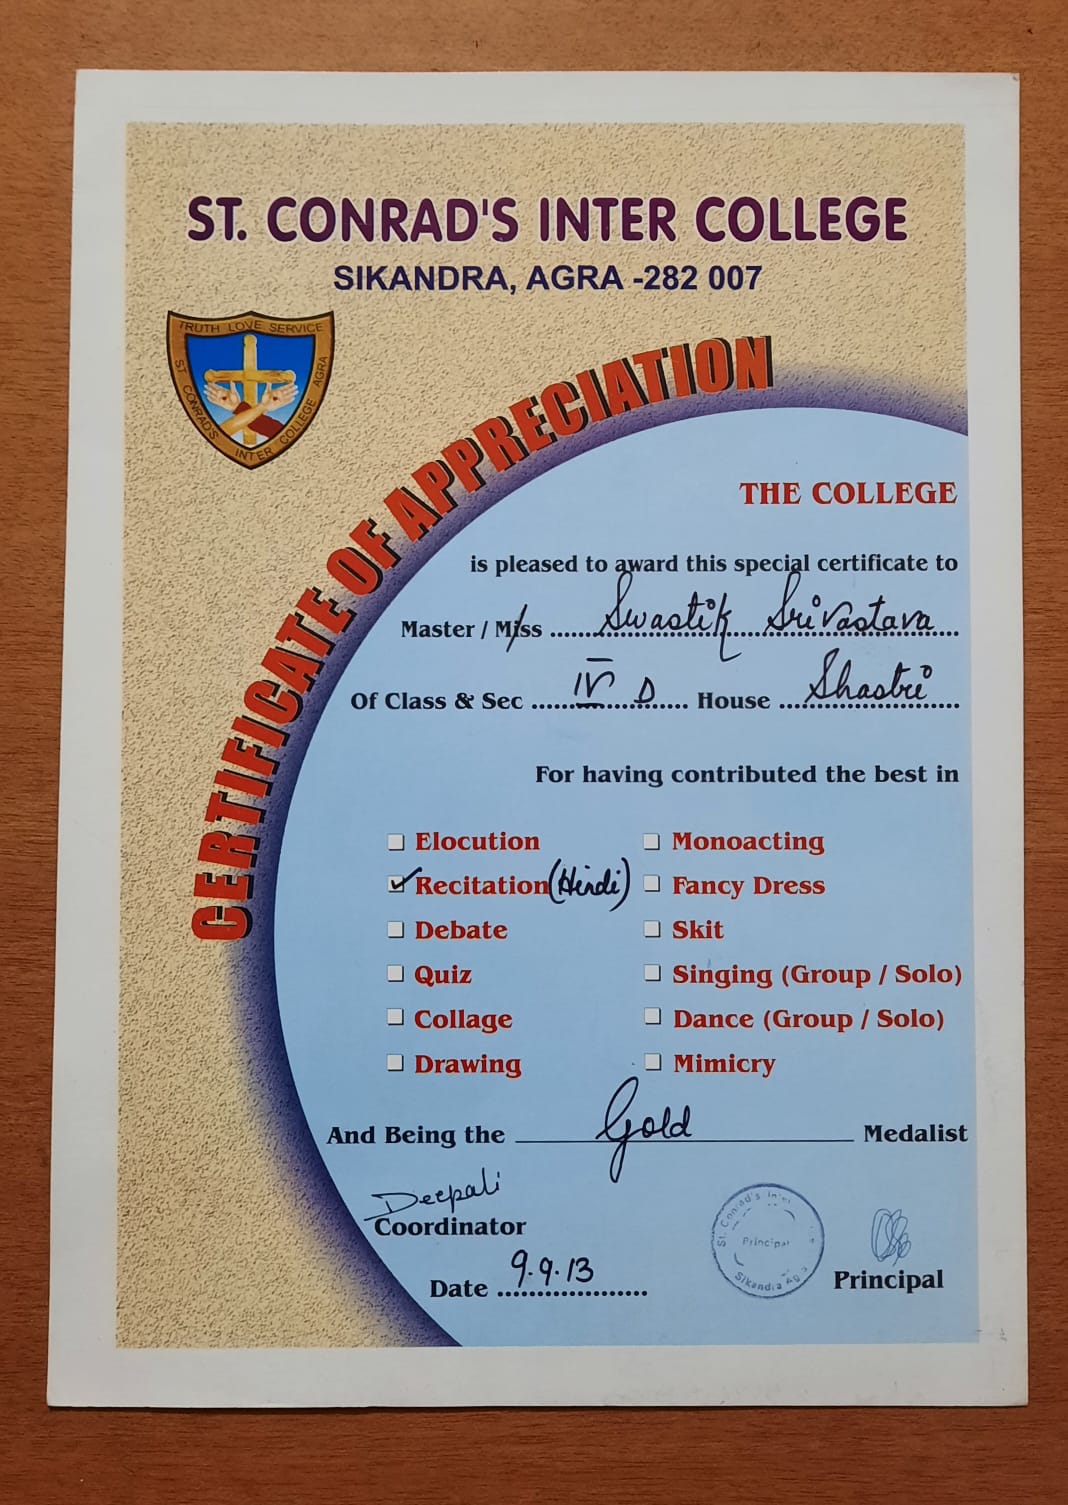 ST. CONRAD'S INTER COLLEGE
SIKANDRA, AGRA -282 007
TRUTH LOVE SERVICE
ST. CONRAD'S INTER COLLEGE AGRA
CERTIFICATE OF APPRECIATION
THE COLLEGE
is pleased to award this special certificate to
Master / Miss Swastik Srivastava
Of Class & Sec IV D House Shastri
For having contributed the best in
Elocution Monoacting
Recitation (Hindi) Fancy Dress
Debate Skit
Quiz Singing (Group / Solo)
Collage Dance (Group / Solo)
Drawing Mimicry
And Being the Gold Medalist
Deepali
Coordinator
St. Conrad's Inter
Principal
Sikandra Agra
Principal
Date 9.9.13